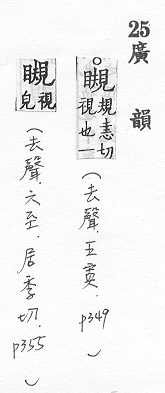 25
廣韻
○瞡規恚切視也一
(去聲.五寘.p349)
瞡視皃
(去聲.六至.居季切.p355)